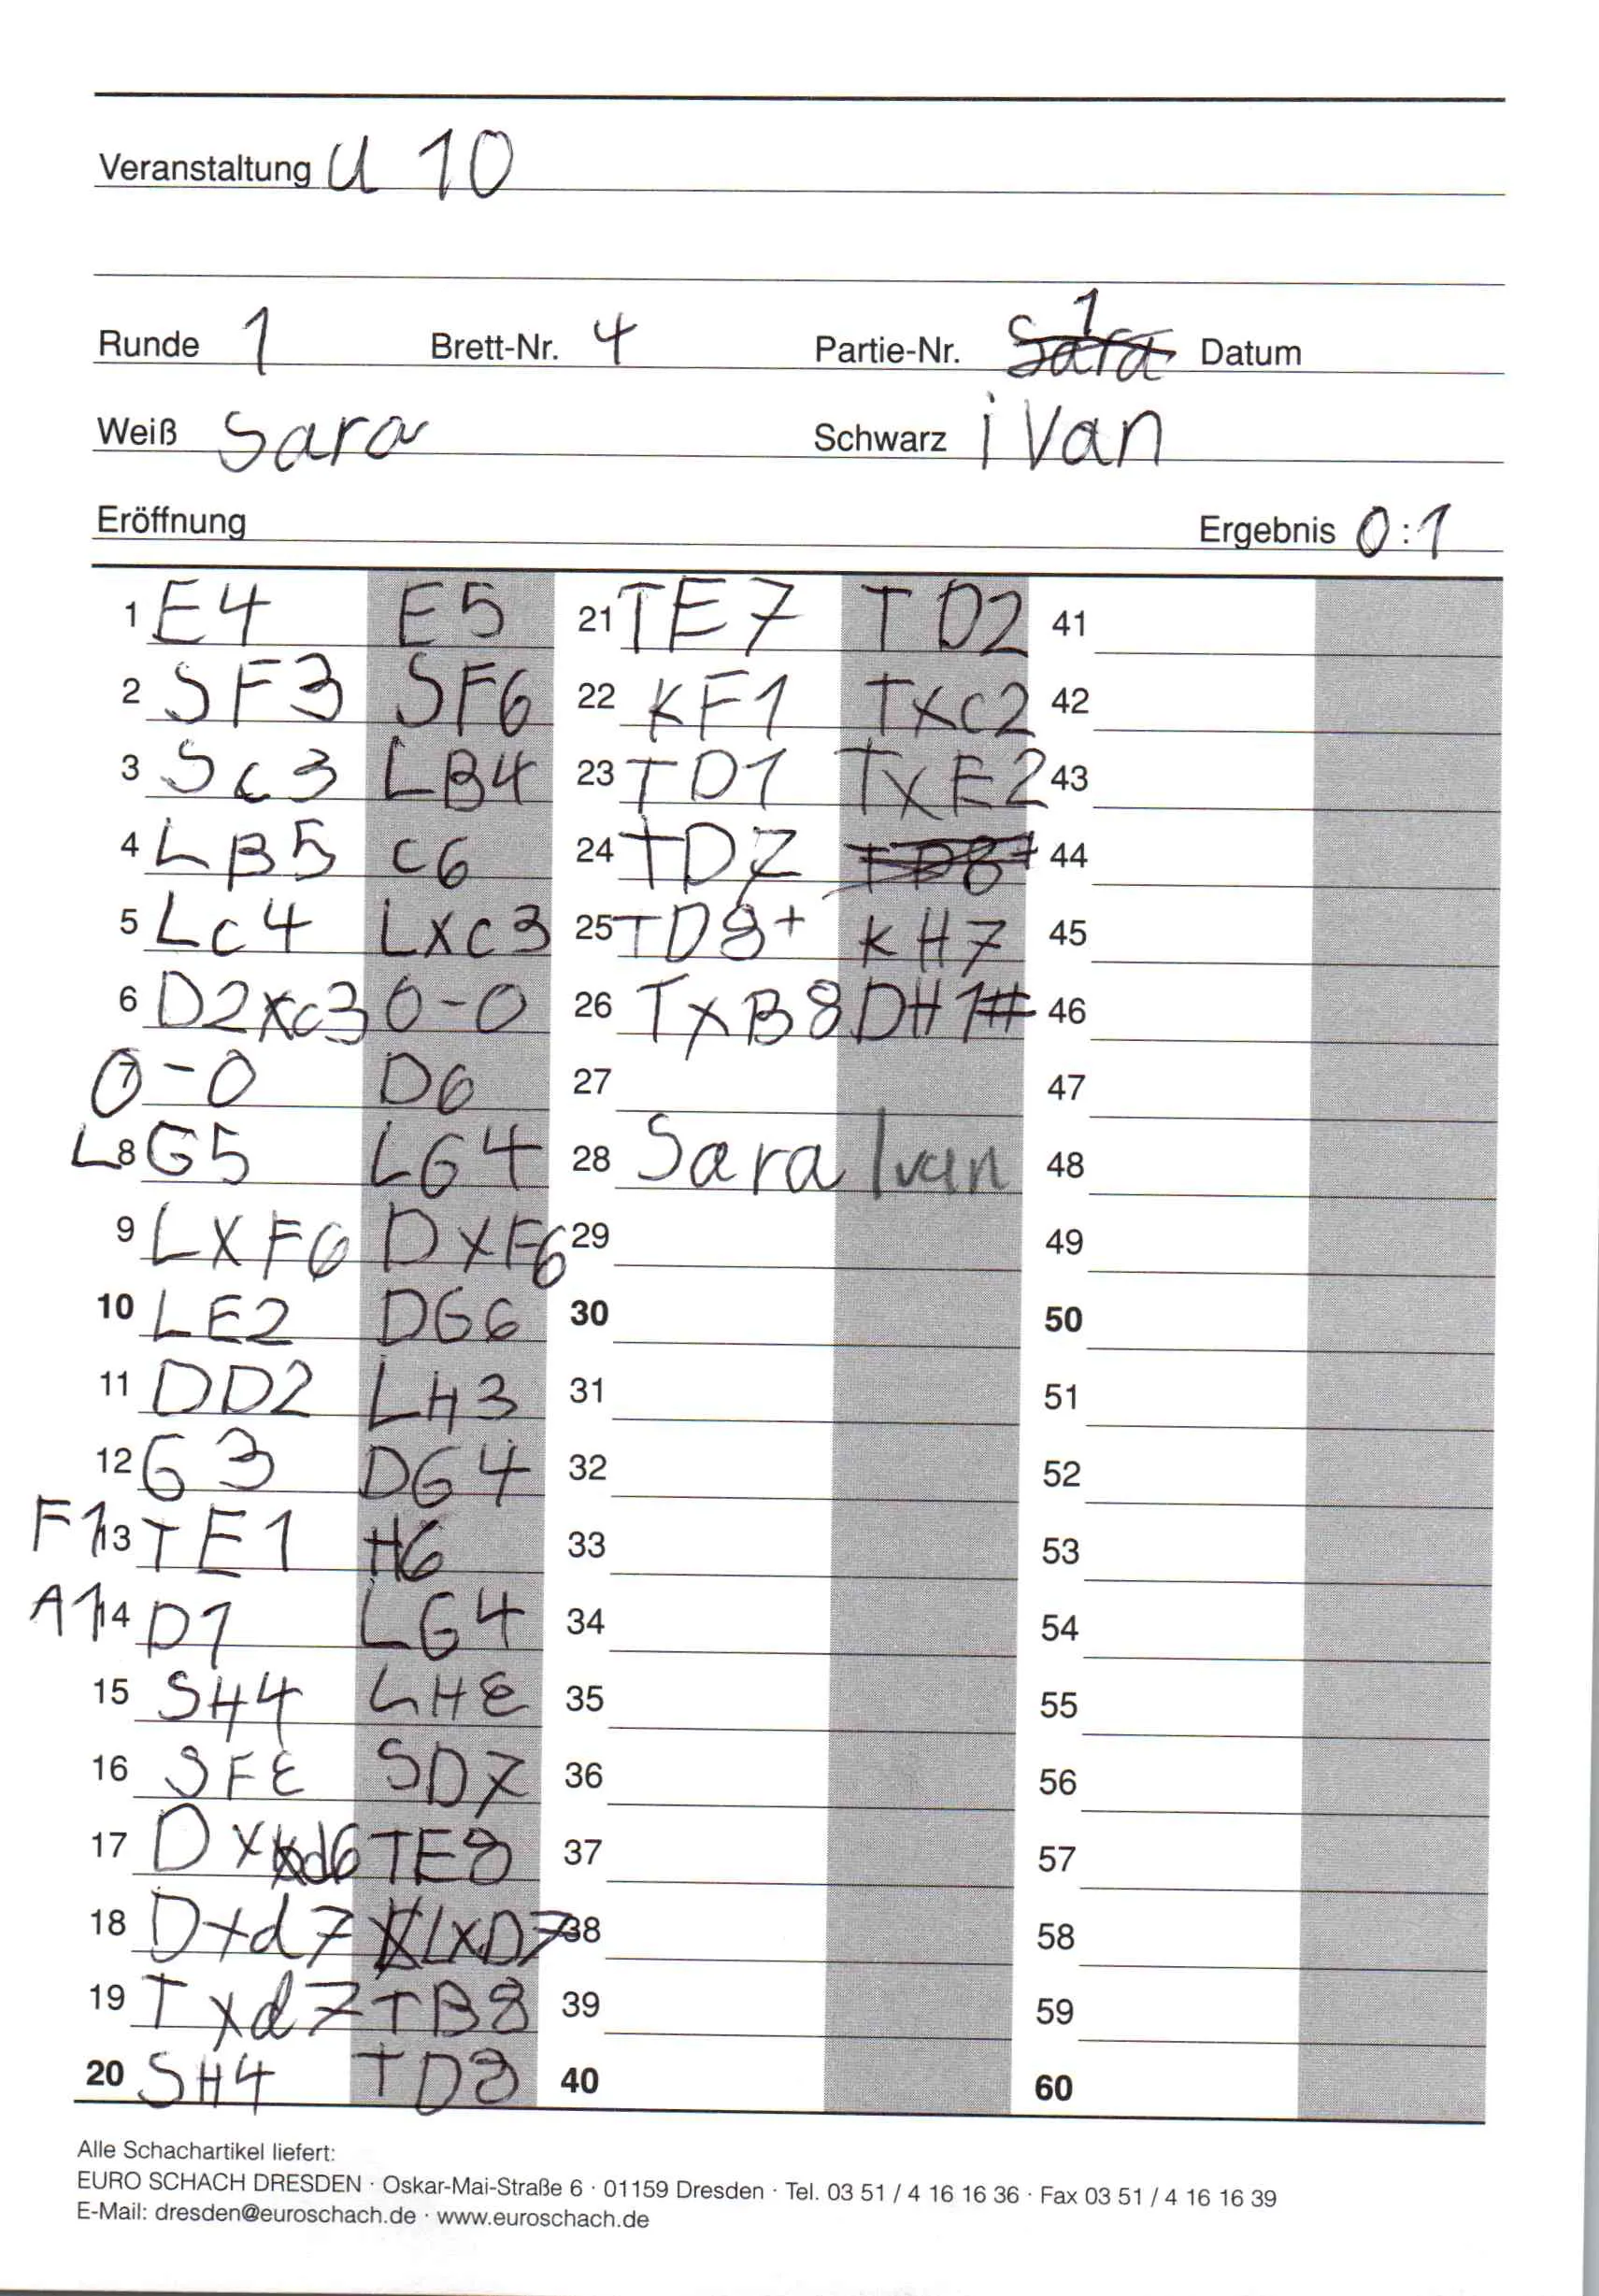 Veranstaltung U 10
Runde 1 Brett-Nr. 4 Partie-Nr. Sara 1 Datum
Weiß Sara Schwarz iVan
Eröffnung Ergebnis 0:1
1 E4 E5 21 TE7 TD2 41
2 SF3 SF6 22 KF1 TXc2 42
3 Sc3 LB4 23 TD1 TXE2 43
4 LB5 c6 24 TD7 44
5 Lc4 LXc3 25 TD8+ KH7 45
6 D2Xc3 0-0 26 TXB8 DH1# 46
7 0-0 D6 27 47
8 LG5 LG4 28 Sara Ivan 48
9 LXF6 DXF6 29 49
10 LE2 DG6 30 50
11 DD2 LH3 31 51
12 G3 DG4 32 52
13 F1 TE1 H6 33 53
14 A1 D1 LG4 34 54
15 SH4 LH8 35 55
16 SF8 SD7 36 56
17 DXd6 TE8 37 57
18 Dxd7 LXD7 38 58
19 Txd7 TB8 39 59
20 SH4 TD8 40 60
Alle Schachartikel liefert:
EURO SCHACH DRESDEN · Oskar-Mai-Straße 6 · 01159 Dresden · Tel. 03 51 / 4 16 16 36 · Fax 03 51 / 4 16 16 39
E-Mail: dresden@euroschach.de · www.euroschach.de